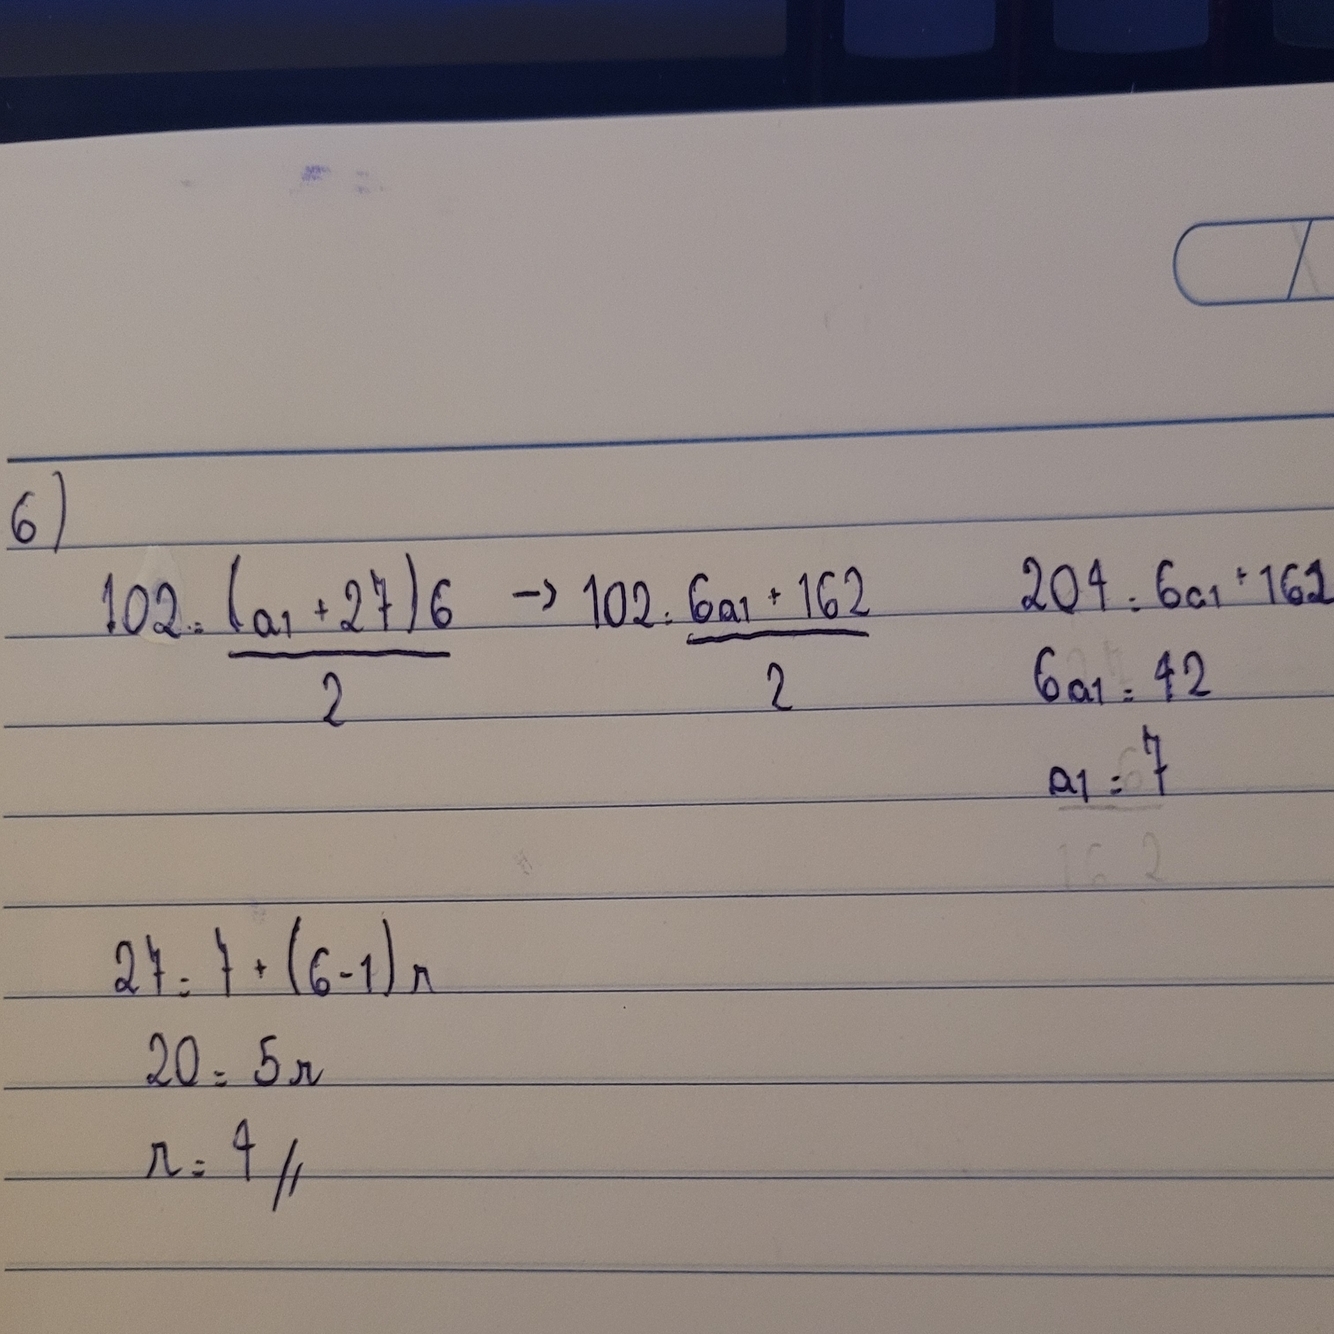 6)
102 = (a1 + 27)6 → 102 = 6a1 + 162 204 = 6a1 + 162
2 2
6a1 = 42
a1 = 7
27 = 7 + (6-1)r
20 = 5r
r = 4 //